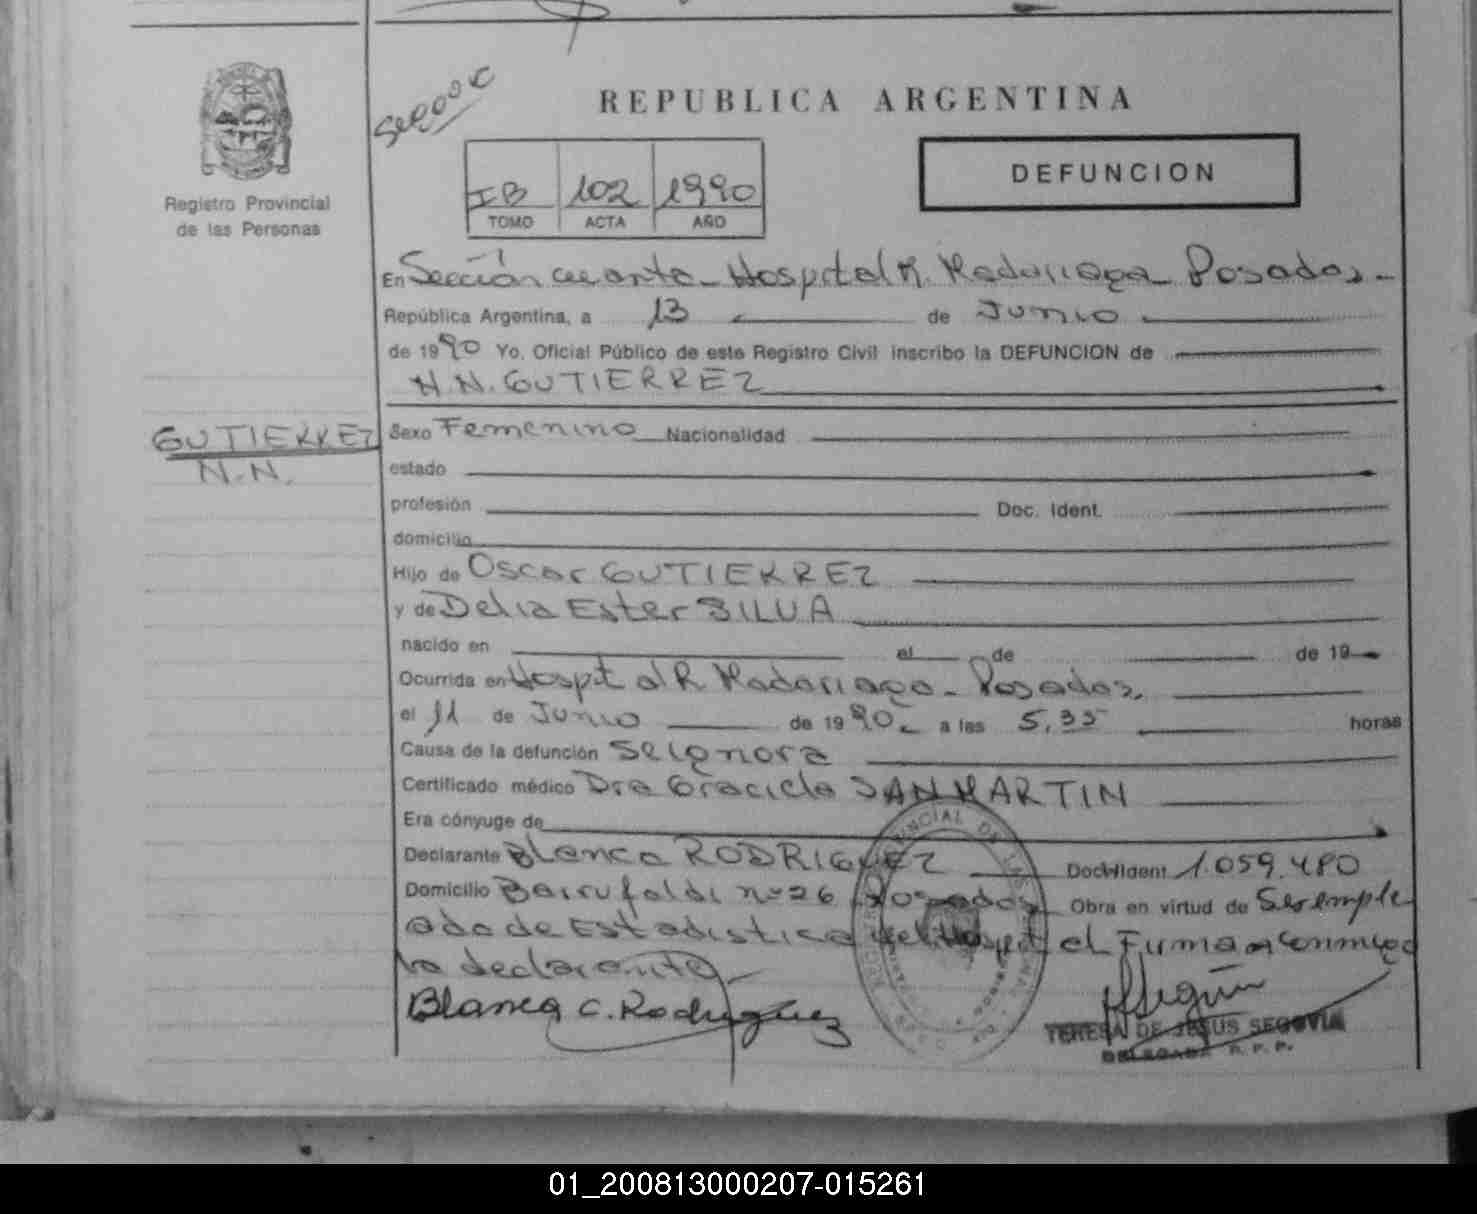 REPUBLICA ARGENTINA
Registro Provincial
de las Personas
IB 102 1990
TOMO ACTA AÑO
DEFUNCION
En Sección cuarta - Hospital R. Madariaga Posadas -
República Argentina, a 13 de Junio
de 1990 Yo, Oficial Público de este Registro Civil inscribo la DEFUNCION de
N.N. GUTIERREZ
GUTIERREZ
N.N.
Sexo Femenino Nacionalidad
estado
profesión Doc. Ident.
domicilio
Hijo de Oscar GUTIERREZ
y de Delia Ester SILVA
nacido en el de de 19
Ocurrida en Hospital R Madariaga - Posadas,
el 11 de Junio de 1990 a las 5,35 horas
Causa de la defunción Se ignora
Certificado médico Dra Graciela SAN MARTIN
Era cónyuge de
Declarante Blanca RODRIGUEZ Doc. Ident 1.059.480
Domicilio Barrufaldi nº 26 Posadas Obra en virtud de Ser emple
ada de Estadística del Hospital Firma conmigo
la declarante
Blanca C. Rodriguez
TERESA DE JESUS SEGOVIA
DELEGADA R. P. P.
01_200813000207-015261